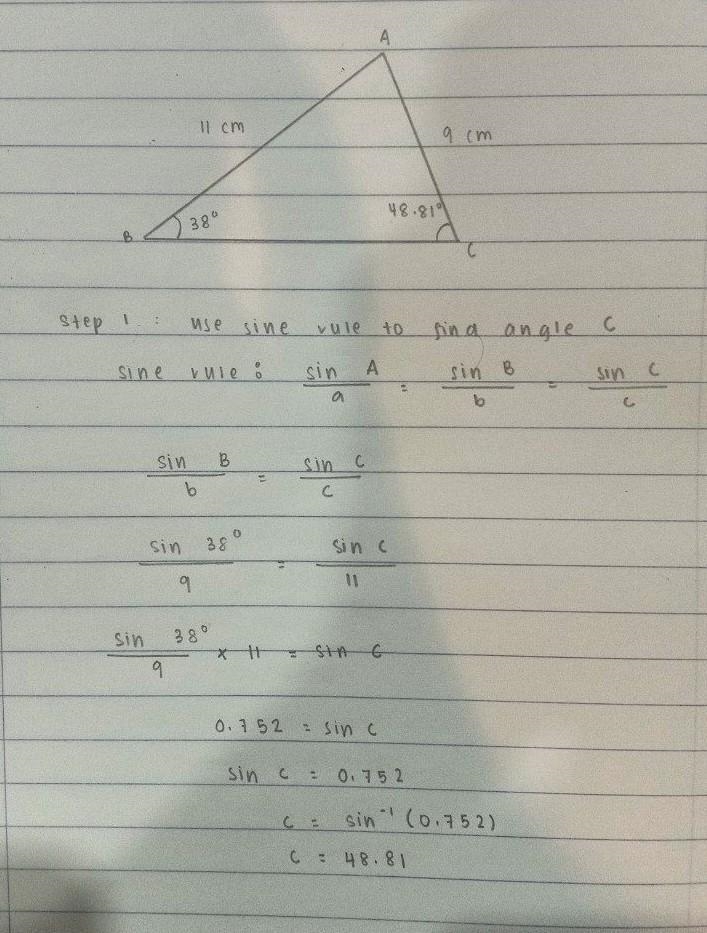 A
11 cm
9 cm
38°
48.81°
B
C
Step 1 : use sine rule to find angle C
sine rule : sin A / a = sin B / b = sin C / c
sin B / b = sin C / c
sin 38° / 9 = sin C / 11
sin 38° / 9 × 11 = sin C
0.752 = sin C
sin C = 0.752
C = sin⁻¹ (0.752)
C = 48.81